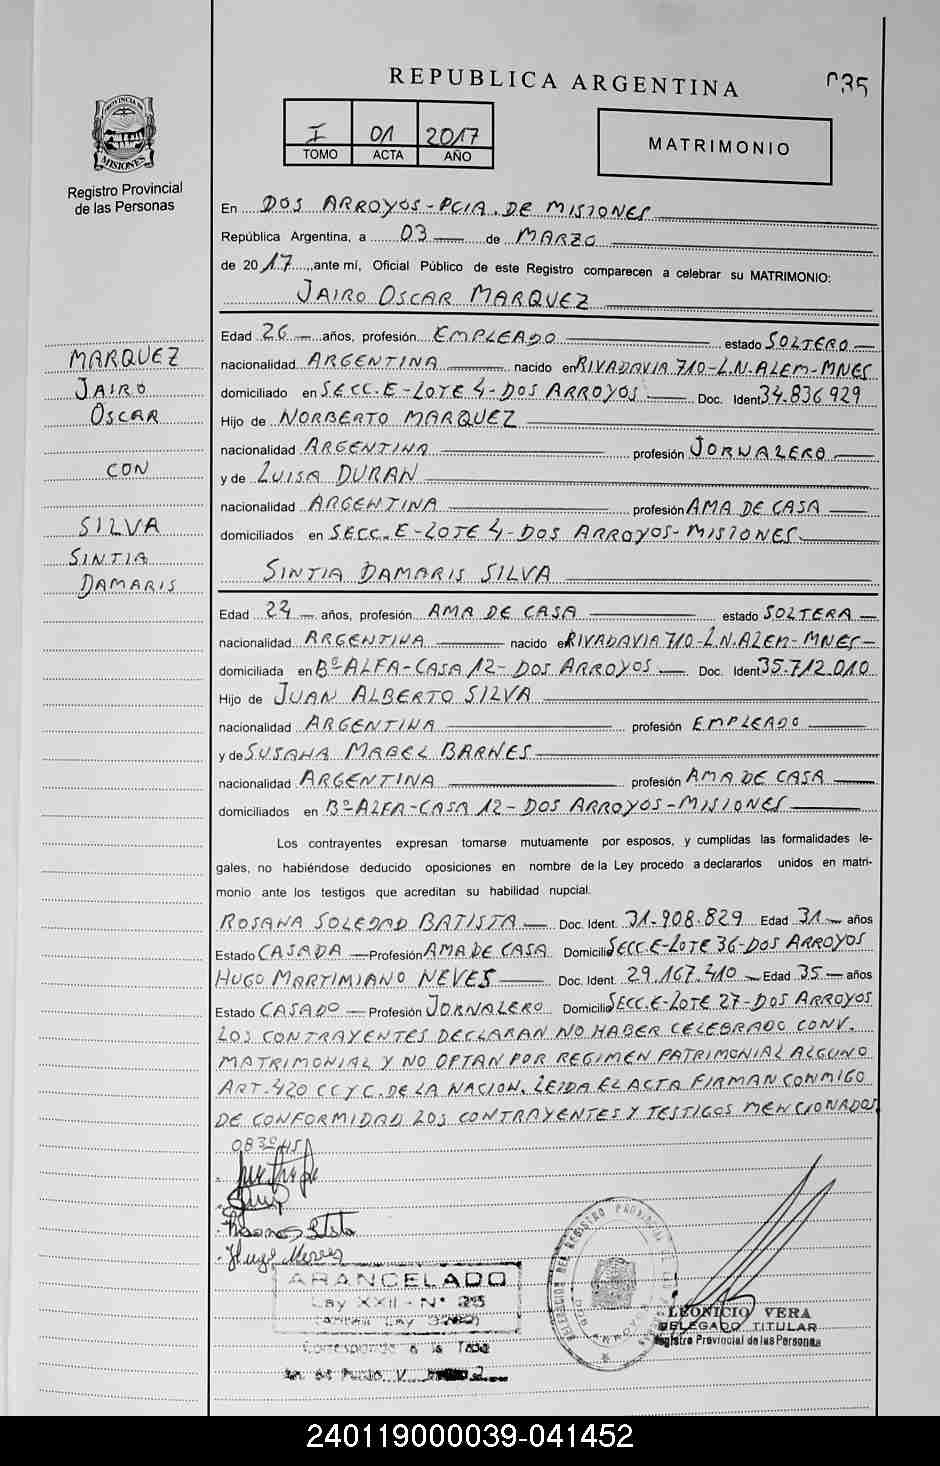 REPUBLICA ARGENTINA
035
I 01 2017
TOMO ACTA AÑO
MATRIMONIO
PROVINCIA DE
MISIONES
Registro Provincial
de las Personas
En DOS ARROYOS-PCIA. DE MISIONES
República Argentina, a 03 de MARZO
de 2017, ante mí, Oficial Público de este Registro comparecen a celebrar su MATRIMONIO:
JAIRO OSCAR MARQUEZ
MARQUEZ
JAIRO
OSCAR
CON
SILVA
SINTIA
DAMARIS
Edad 26 años, profesión EMPLEADO estado SOLTERO
nacionalidad ARGENTINA nacido en RIVADAVIA 710-L.N.ALEM-MNES
domiciliado en SECC.E-LOTE 4-DOS ARROYOS Doc. Ident 34.836.929
Hijo de NORBERTO MARQUEZ
nacionalidad ARGENTINA profesión JORNALERO
y de LUISA DURAN
nacionalidad ARGENTINA profesión AMA DE CASA
domiciliados en SECC.E-LOTE 4-DOS ARROYOS-MISIONES
SINTIA DAMARIS SILVA
Edad 24 años, profesión AMA DE CASA estado SOLTERA
nacionalidad ARGENTINA nacido en RIVADAVIA 710-L.N.ALEM-MNES-
domiciliada en Bº ALFA-CASA 12-DOS ARROYOS Doc. Ident 35.712.010
Hijo de JUAN ALBERTO SILVA
nacionalidad ARGENTINA profesión EMPLEADO
y de SUSANA MABEL BARNES
nacionalidad ARGENTINA profesión AMA DE CASA
domiciliados en Bº ALFA-CASA 12-DOS ARROYOS-MISIONES
Los contrayentes expresan tomarse mutuamente por esposos, y cumplidas las formalidades le-
gales, no habiéndose deducido oposiciones en nombre de la Ley procedo a declararlos unidos en matri-
monio ante los testigos que acreditan su habilidad nupcial.
ROSANA SOLEDAD BATISTA Doc. Ident. 31.908.829 Edad 31 años
Estado CASADA Profesión AMA DE CASA Domicilio SECC.E-LOTE 36-DOS ARROYOS
HUGO MARTIMIANO NEVES Doc. Ident. 29.167.410 Edad 35 años
Estado CASADO Profesión JORNALERO Domicilio SECC.E-LOTE 27-DOS ARROYOS
LOS CONTRAYENTES DECLARAN NO HABER CELEBRADO CONV.
MATRIMONIAL Y NO OPTAN POR REGIMEN PATRIMONIAL ALGUNO
ART.420 CCYC. DE LA NACION. LEIDA EL ACTA FIRMAN CONMIGO
DE CONFORMIDAD LOS CONTRAYENTES Y TESTIGOS MENCIONADOS
ARANCELADO
Ley XXII - Nº 25
Corresponde a la Tasa
LEONICIO VERA
DELEGADO TITULAR
Registro Provincial de las Personas
240119000039-041452